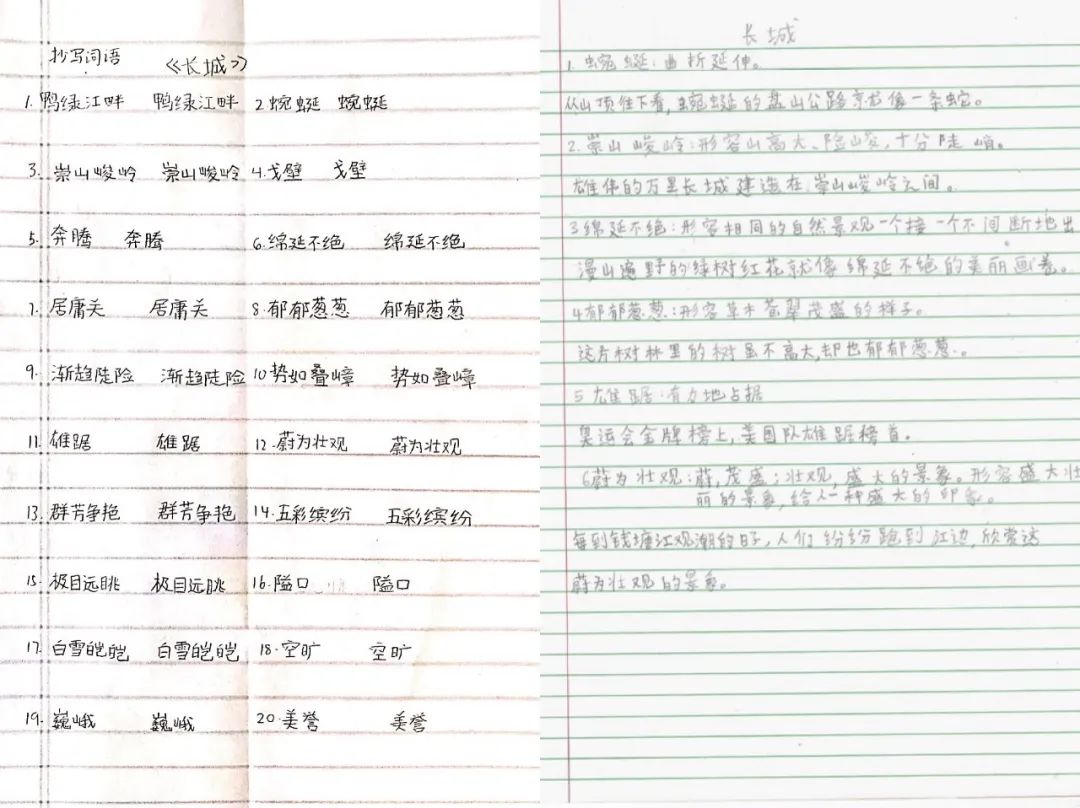 抄写词语 《长城》
1. 鸭绿江畔 鸭绿江畔 2. 蜿蜒 蜿蜒
3. 崇山峻岭 崇山峻岭 4. 戈壁 戈壁
5. 奔腾 奔腾 6. 绵延不绝 绵延不绝
7. 居庸关 居庸关 8. 郁郁葱葱 郁郁葱葱
9. 渐趋陡险 渐趋陡险 10 势如叠嶂 势如叠嶂
11. 雄踞 雄踞 12. 蔚为壮观 蔚为壮观
13. 群芳争艳 群芳争艳 14. 五彩缤纷 五彩缤纷
15. 极目远眺 极目远眺 16. 隘口 隘口
17. 白雪皑皑 白雪皑皑 18. 空旷 空旷
19. 巍峨 巍峨 20. 美誉 美誉
长城
1. 蜿蜒:曲折延伸。
从山顶往下看,蜿蜒的盘山公路就像一条蛇。
2. 崇山峻岭:形容山高大、险峻,十分陡峭。
雄伟的万里长城建造在崇山峻岭之间。
3 绵延不绝:形容相同的自然景观一个接一个不间断地出
漫山遍野的绿树红花就像绵延不绝的美丽画卷。
4 郁郁葱葱:形容草木苍翠茂盛的样子。
这片树林里的树虽不高大,却也郁郁葱葱。
5 雄踞:有力地占据
奥运会金牌榜上,美国队雄踞榜首。
6 蔚为壮观:蔚,茂盛;壮观,盛大的景象。形容盛大壮
丽的景象,给人一种盛大的印象。
每到钱塘江观潮的日子,人们纷纷跑到江边,欣赏这
蔚为壮观的景象。